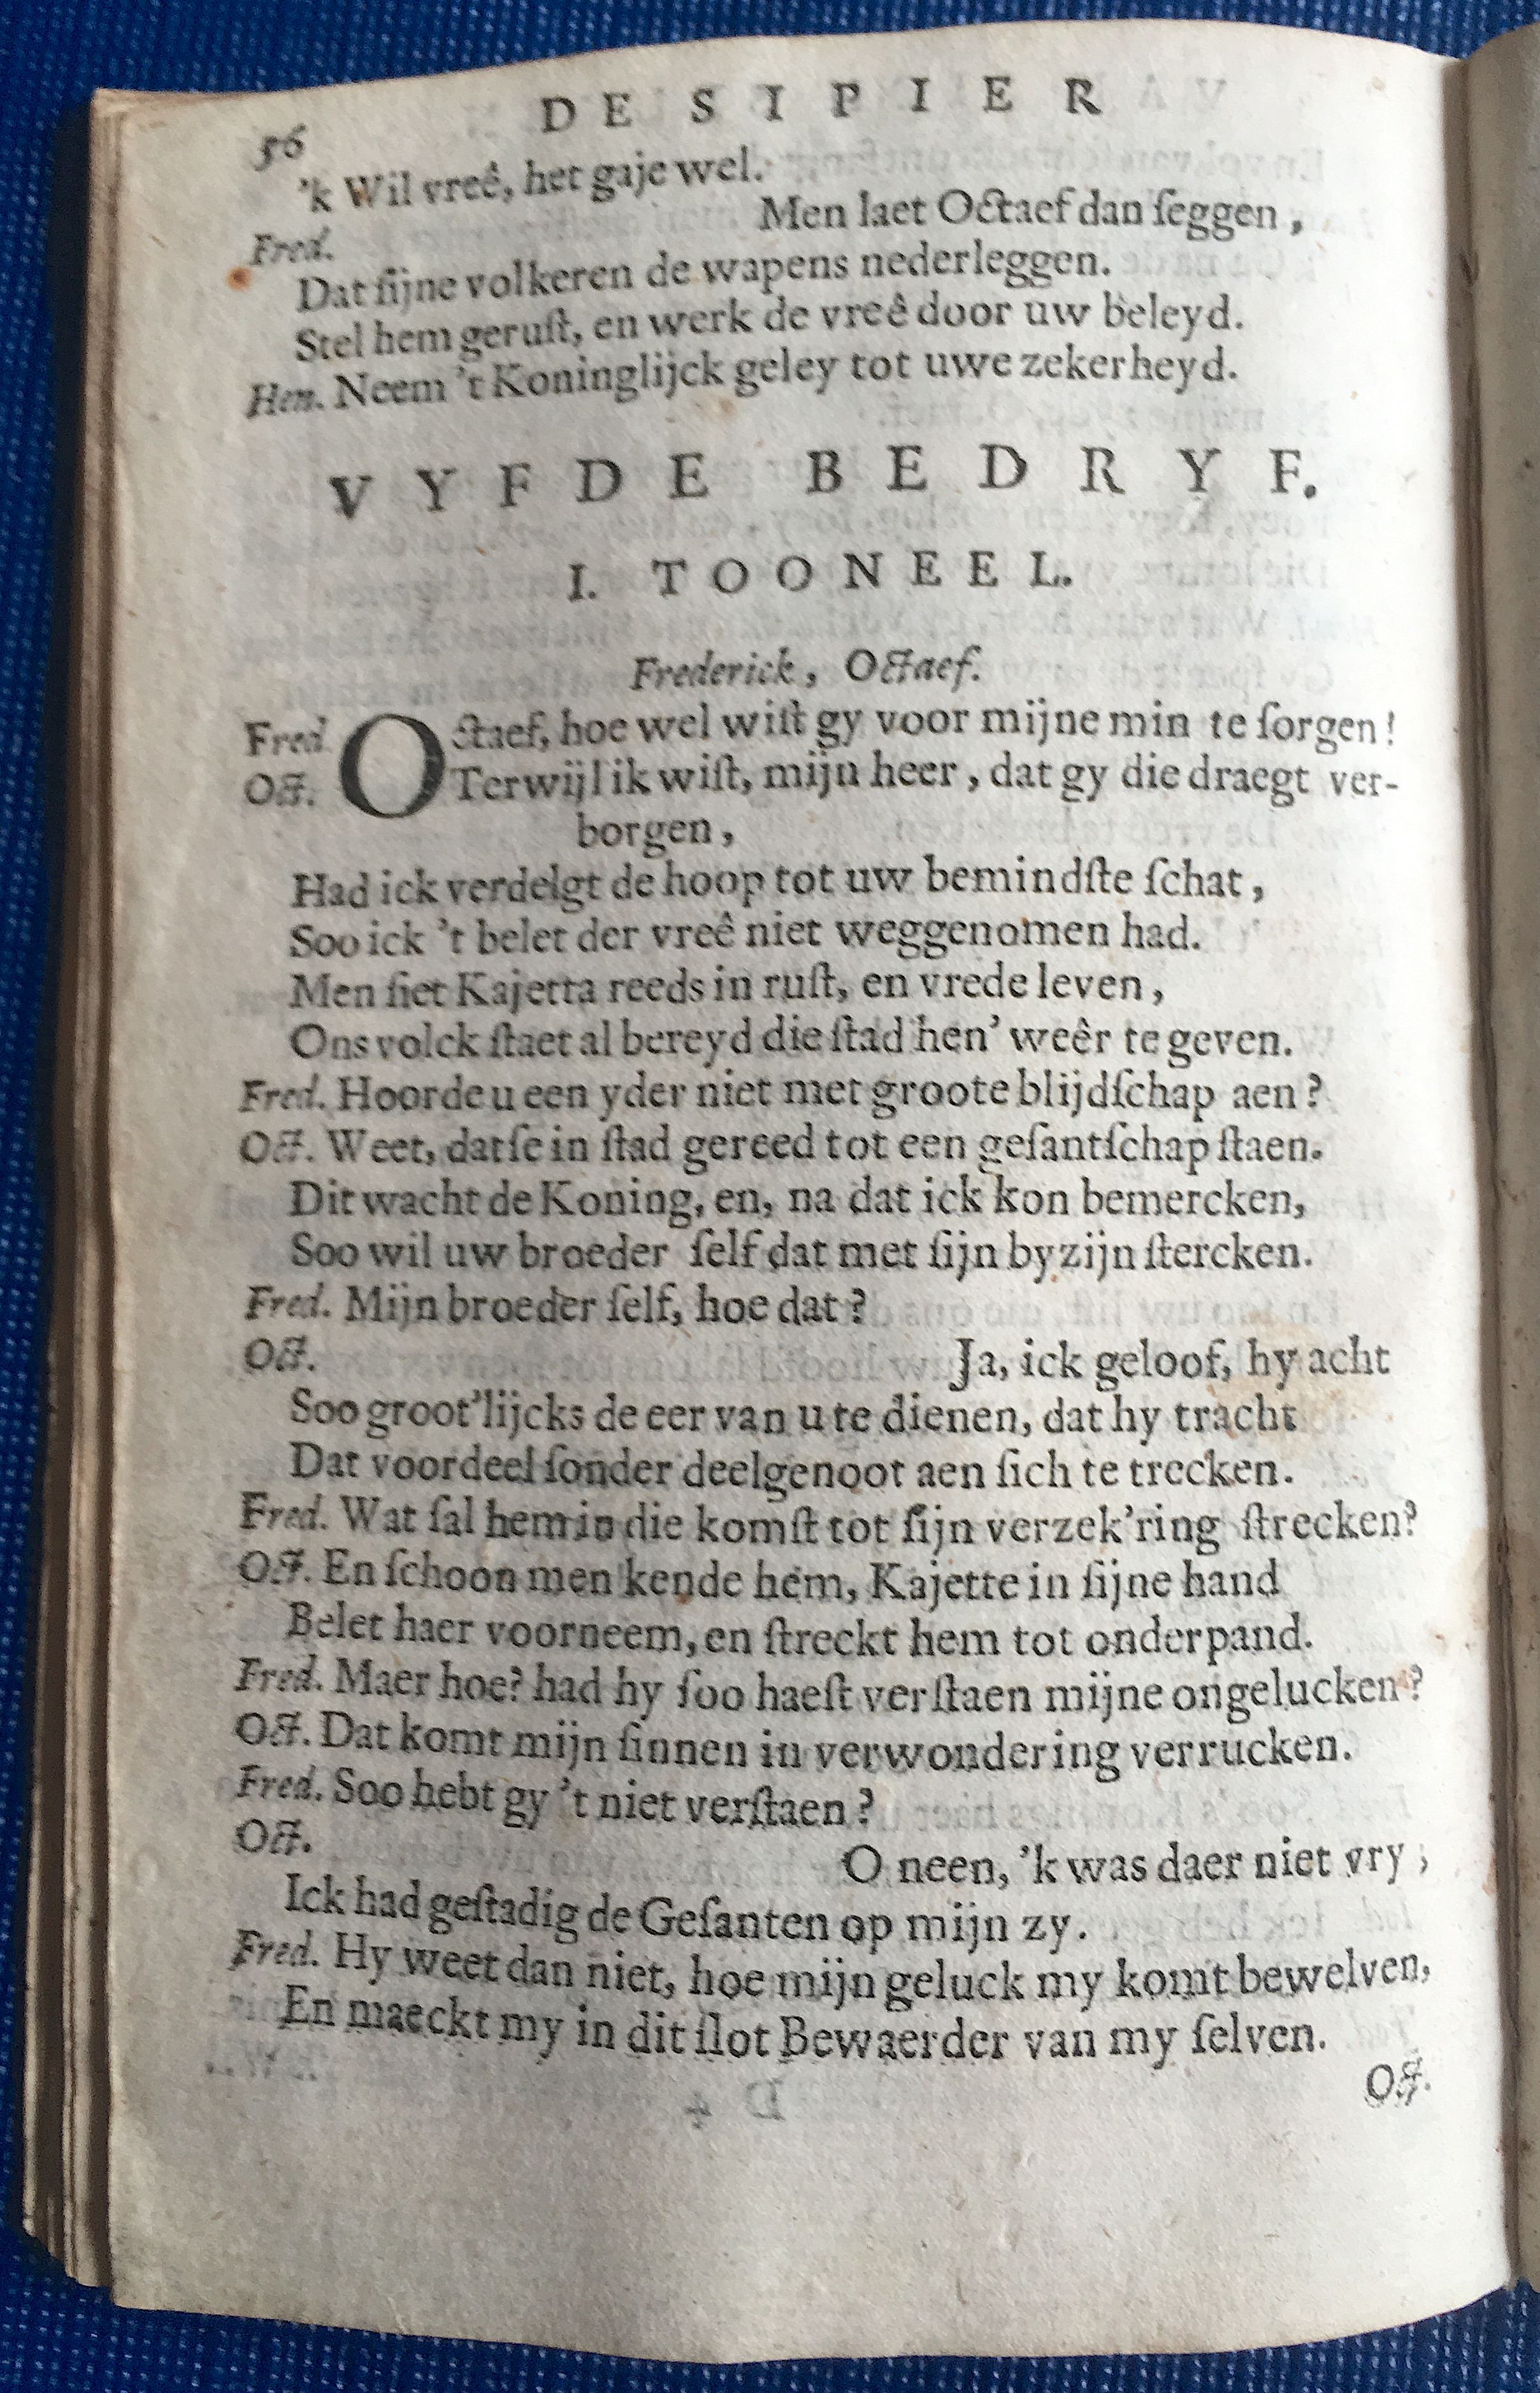 56 DE SIPIER
'k Wil vreê, het gaje wel.
Fred. Men laet Octaef dan ſeggen,
Dat ſijne volkeren de wapens nederleggen.
Stel hem geruſt, en werk de vreê door uw beleyd.
Hen. Neem 't Koninglijck geley tot uwe zekerheyd.
VYFDE BEDRYF.
I. TOONEEL.
Frederick, Octaef.
Fred. Octaef, hoe wel wiſt gy voor mijne min te ſorgen!
Oct. Terwijl ik wiſt, mijn heer, dat gy die draegt ver-
borgen,
Had ick verdelgt de hoop tot uw bemindſte ſchat,
Soo ick 't belet der vreê niet weggenomen had.
Men ſiet Kajetta reeds in ruſt, en vrede leven,
Ons volck ſtaet al bereyd die ſtad hen' weêr te geven.
Fred. Hoorde u een yder niet met groote blijdſchap aen?
Oct. Weet, datſe in ſtad gereed tot een geſantſchap ſtaen.
Dit wacht de Koning, en, na dat ick kon bemercken,
Soo wil uw broeder ſelf dat met ſijn byzijn ſtercken.
Fred. Mijn broeder ſelf, hoe dat?
Oct. Ja, ick geloof, hy acht
Soo groot'lijcks de eer van u te dienen, dat hy tracht
Dat voordeel ſonder deelgenoot aen ſich te trecken.
Fred. Wat ſal hem in die komſt tot ſijn verzek'ring ſtrecken?
Oct. En ſchoon men kende hem, Kajette in ſijne hand
Belet haer voorneem, en ſtreckt hem tot onderpand.
Fred. Maer hoe? had hy ſoo haeſt verſtaen mijne ongelucken?
Oct. Dat komt mijn ſinnen in verwondering verrucken.
Fred. Soo hebt gy 't niet verſtaen?
Oct. O neen, 'k was daer niet vry;
Ick had geſtadig de Geſanten op mijn zy.
Fred. Hy weet dan niet, hoe mijn geluck my komt bewelven,
En maeckt my in dit ſlot Bewaerder van my ſelven.
Oct.